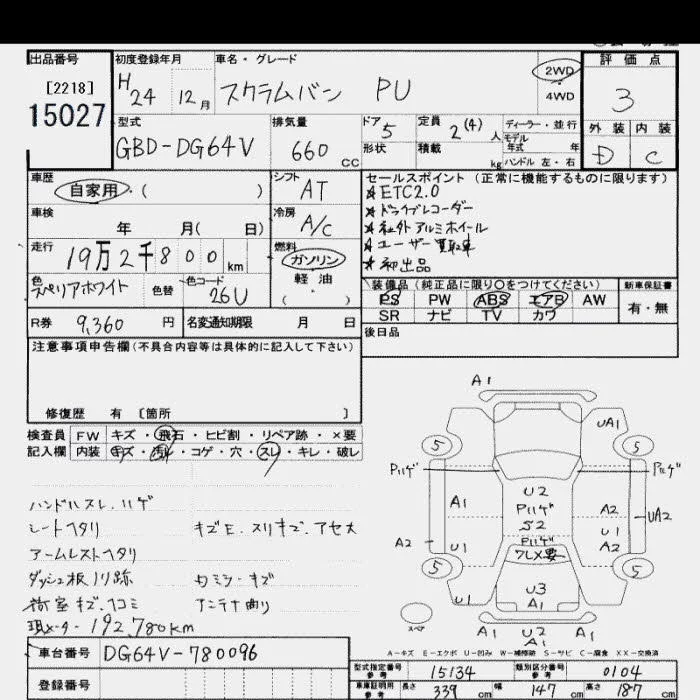 出品番号
[2218]
15027
初度登録年月
H24 12月
車名・グレード
スクラムバン PU
2WD
4WD
評価点
3
外装 内装
D C
型式
GBD-DG64V
排気量
660 cc
ドア 5
形状
定員 2(4) 人
積載 kg
ディーラー・並行
モデル年式 年
ハンドル 左・右
車歴
自家用・( )
シフト
AT
車検
年 月( 日)
冷房
A/C
走行
19万2千800km
燃料
ガソリン
軽油
( )
色
スペリアホワイト
色替
色コード
26U
R券 9,360 円
名変通知期限 月 日
セールスポイント (正常に機能するものに限ります)
★ETC2.0
★ドライブレコーダー
★社外アルミホイール
★ユーザー買取車
★初出品
装備品 (純正品に限り○をつけてください)
PS PW ABS エアB AW
SR ナビ TV カワ
新車保証書
有・無
後日品
注意事項申告欄(不具合内容等は具体的に記入して下さい)
修復歴 有 〔箇所 〕
検査員記入欄
FW キズ・飛石・ヒビ割・リペア跡・×要
内装 キズ・汚れ・コゲ・穴・スレ・キレ・破レ
ハンドルスレ、ハゲ
シートヘタリ キズE、スリキズ、アセメ
アームレストヘタリ
ダッシュ板ノリ跡 内ミラーキズ
荷室キズ、凹コミ アンテナ曲り
現メーター 192,780km
車台番号 DG64V-780096
登録番号
A1
UA1
5 5
Pハゲ Pハゲ
A1
U2
Pハゲ
S2
Pハゲ
ワレ×要
A2
U1
A2
UA2
A2
U1
5 5
U3
A1
U1
スペア
A1 U2 A1
A1
A-キズ E-エクボ U-凹み W-補修跡 S-サビ C-腐食 XX-交換済
型式指定番号 参考 15134
類別区分番号 参考 0104
車庫証明用 参考 長さ 339 cm 幅 147 cm 高さ 187 cm